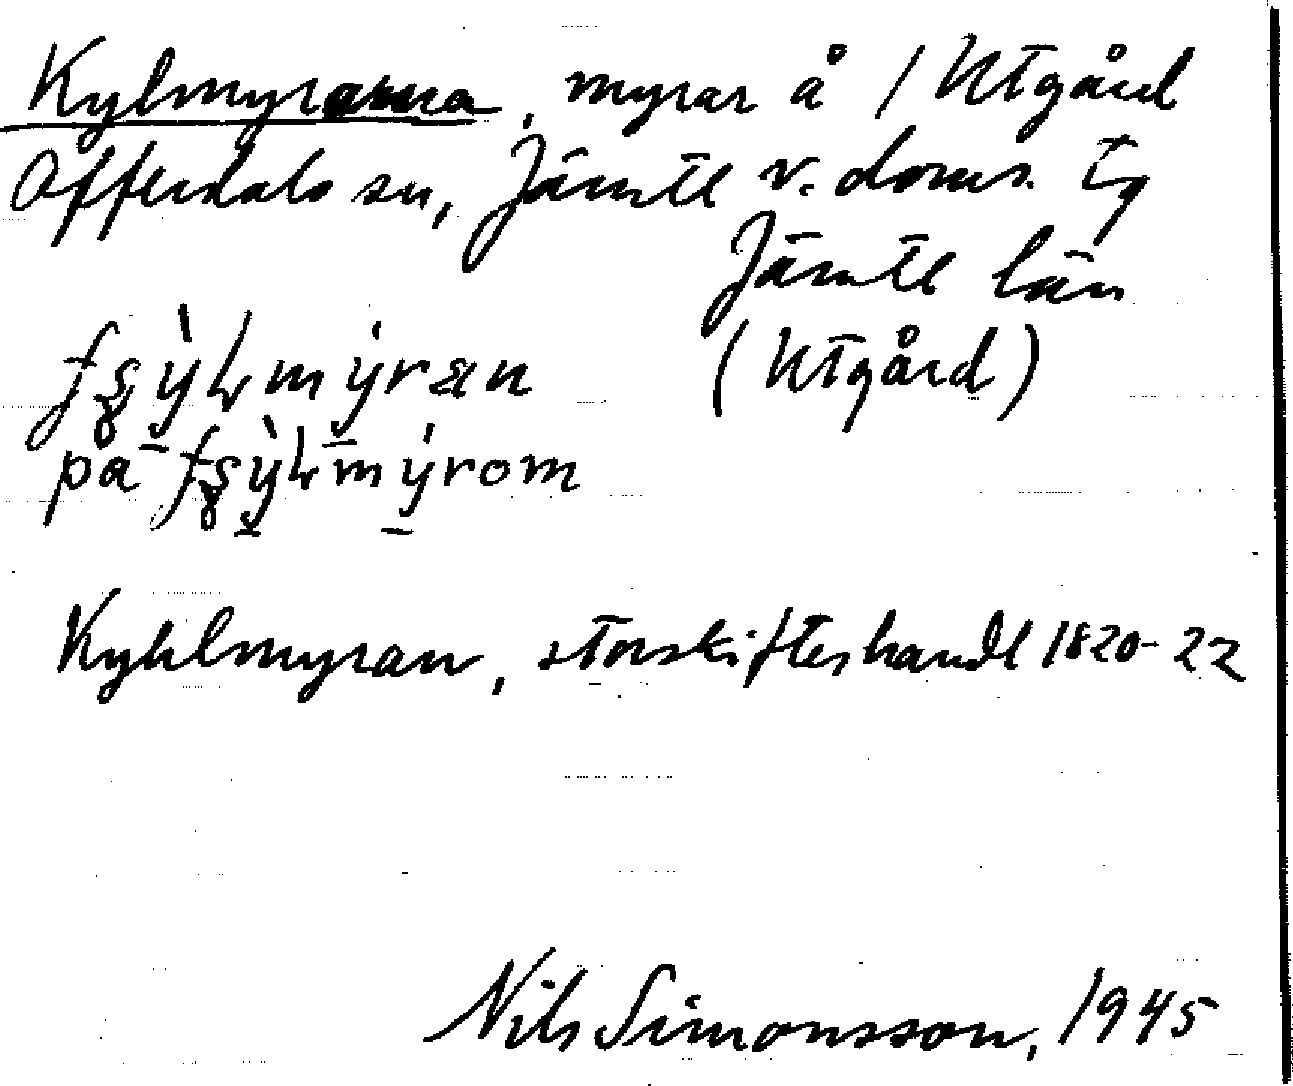 Kylmyrarna, myrar å / Utgård
Offerdals sn, Jämtl v. doms. tg
Jämtl län
(Utgård)
på
Kyhlmyran, storskifteshandl 1820-22
Nils Simonsson, 1945